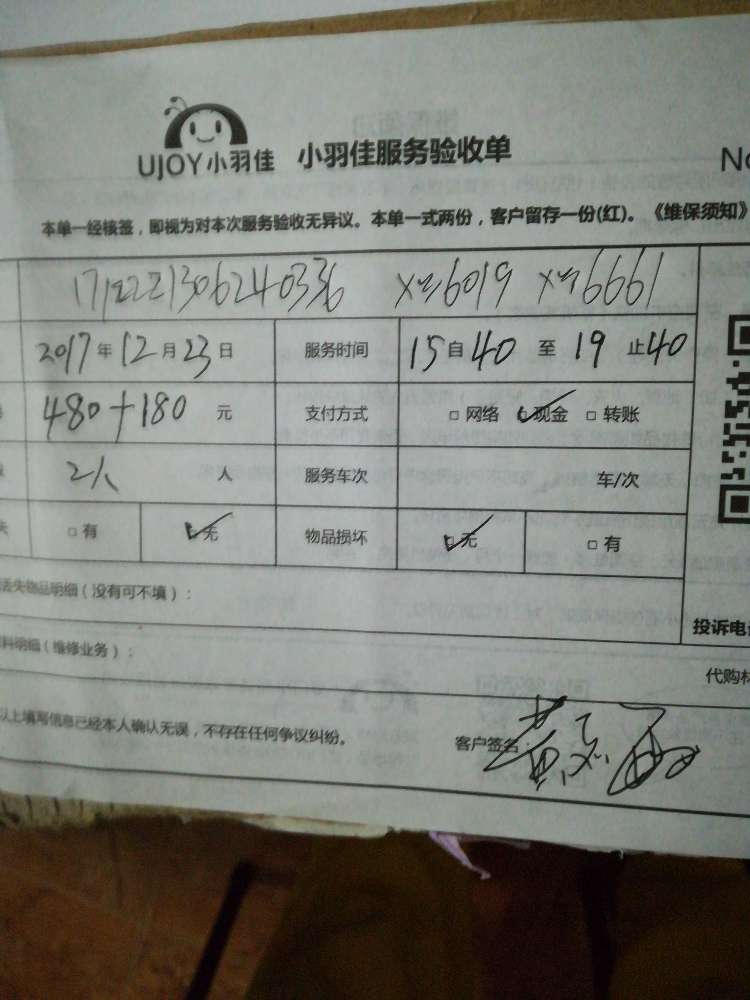 UJOY小羽佳 小羽佳服务验收单 No
本单一经核签，即视为对本次服务验收无异议。本单一式两份，客户留存一份(红)。《维保须知》
6019 6661
2017年12月23日 服务时间 15自40至19止40
480+180元 支付方式 □网络 ☑现金 □转账
2人 人 服务车次 车/次
失 □有 ☑无 物品损坏 ☑无 □有
丢失物品明细（没有可不填）：
投诉电话
料明细（维修业务）：
代购材
以上填写信息已经本人确认无误，不存在任何争议纠纷。 客户签名：